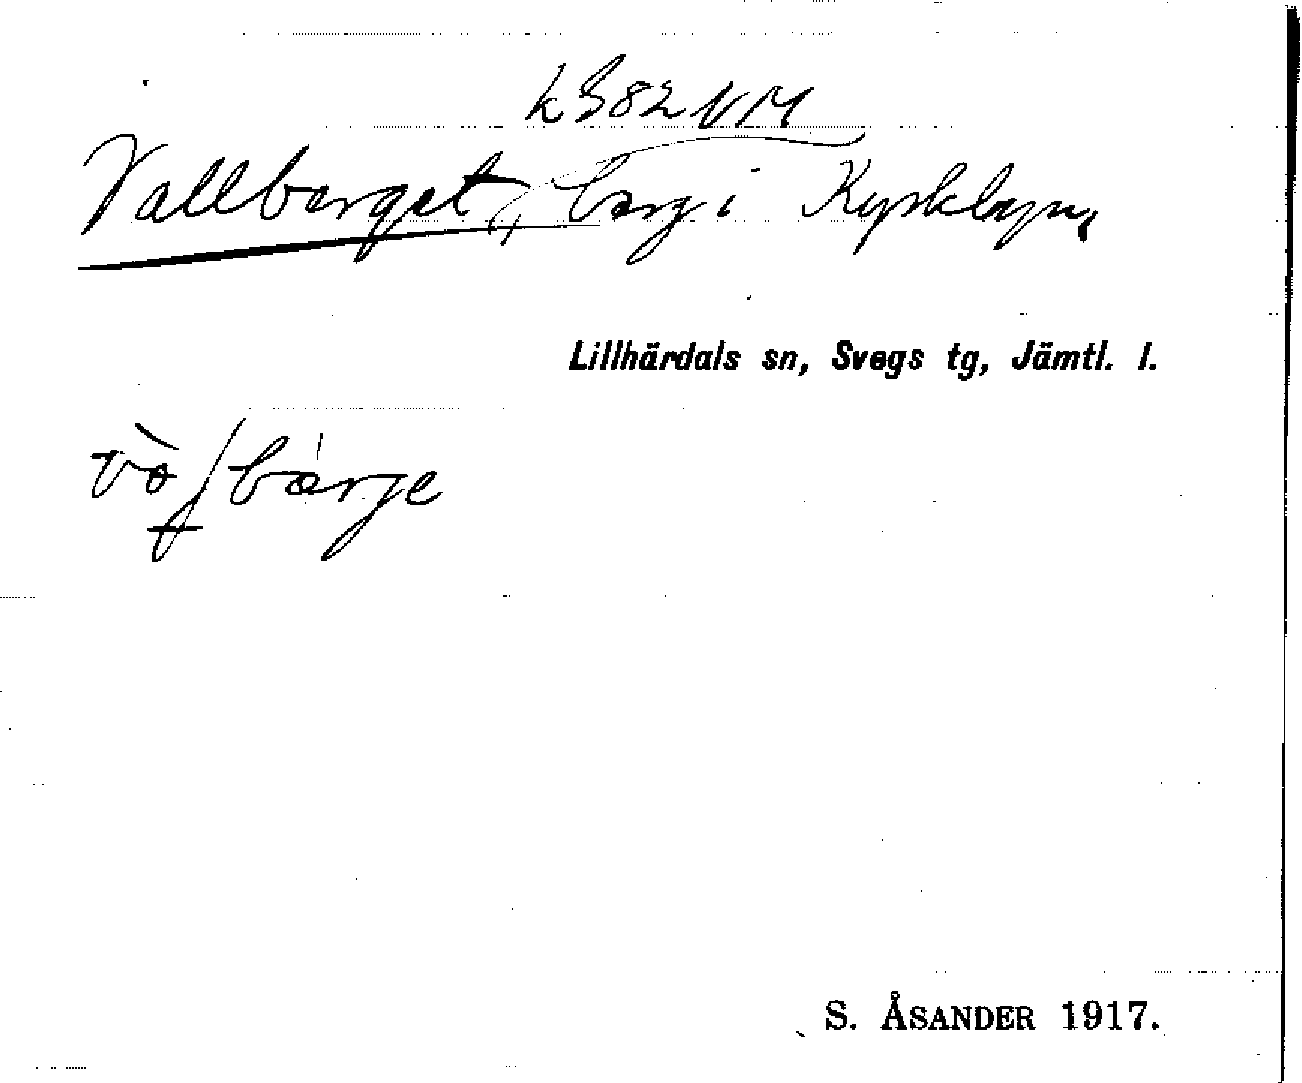 k 382 NM
Vallberget, berg i Kyrkbyn,
Lillhärdals sn, Svegs tg, Jämtl. l.
S. ÅSANDER 1917.